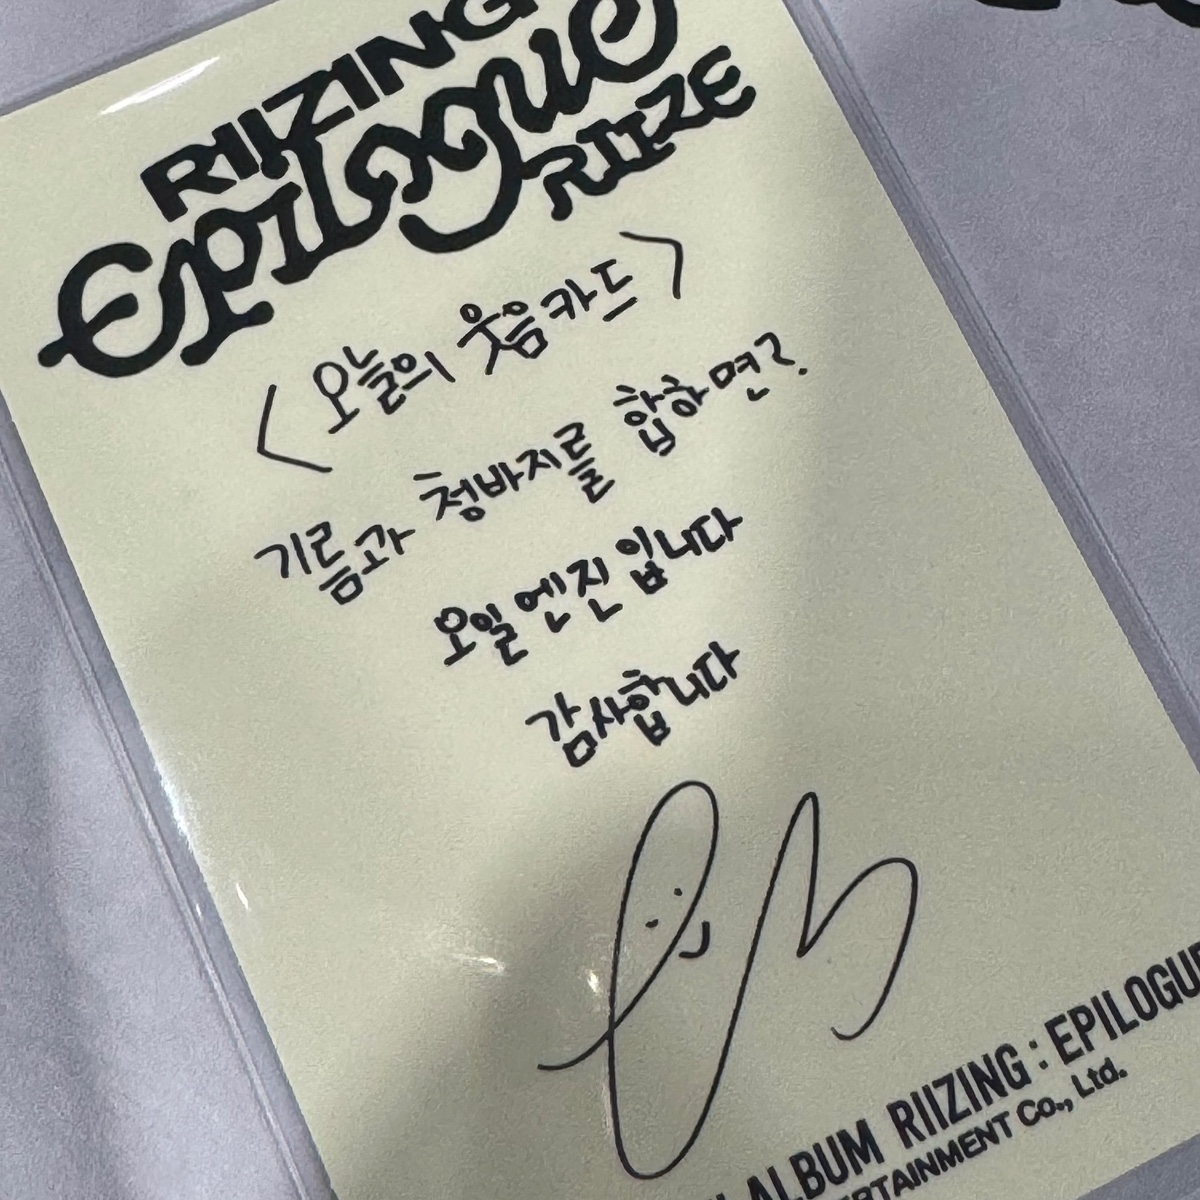 RIIZING
Epilogue
RIIZE
<오늘의 웃음카드>
기름과 청바지를 합하면?
오일 엔진입니다
감사합니다
ALBUM RIIZING : EPILOGUE
ERTAINMENT Co., Ltd.